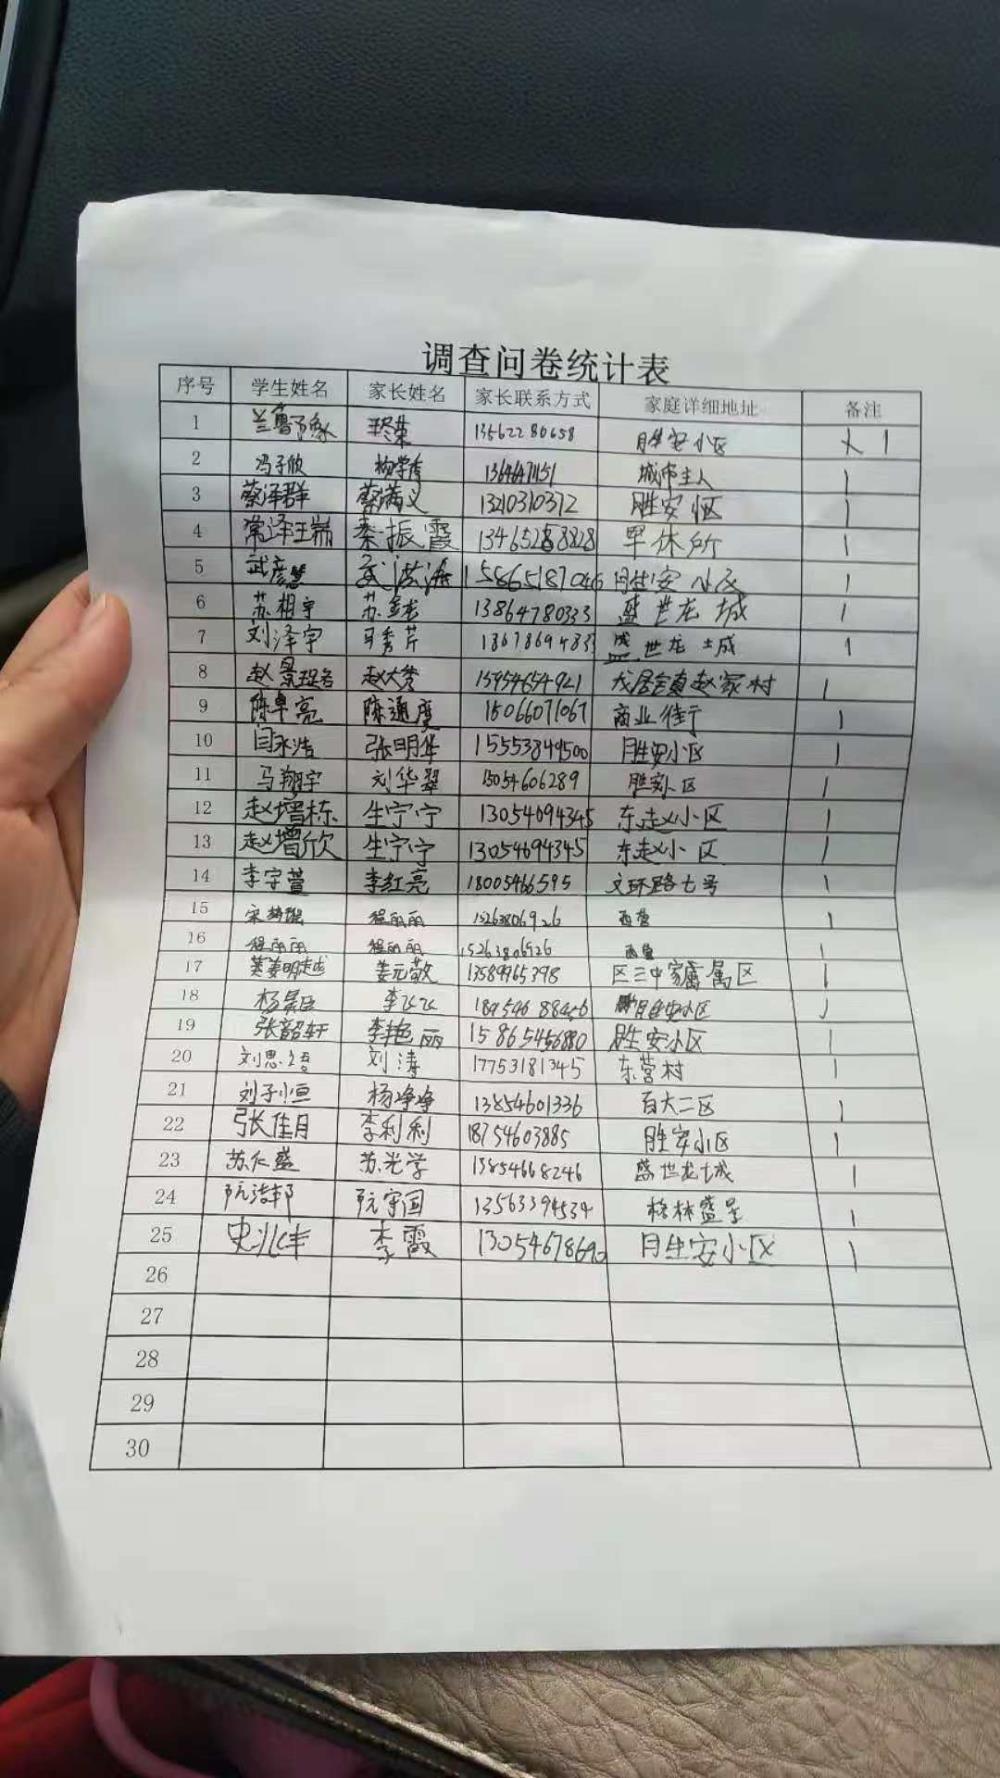 调查问卷统计表
序号 学生姓名 家长姓名 家长联系方式 家庭详细地址 备注
1 兰鲁豫 13562280658 胜安小区 大 1
2 冯子欣 城市主人 1
3 蔡泽群 蔡满义 13210310312 胜安小区 1
4 秦振霞 13465288828 单休所 1
5 武彦慧 武洪海 15865187046 胜安小区 1
6 苏相宇 苏金龙 13864780333 盛世龙城 1
7 刘泽宇 马秀芹 盛世龙城 1
8 赵景瑶 15954654921 龙居镇赵家村 1
9 陈卓亮 陈通度 15066071067 商业街 1
10 闫永浩 张明华 15553849500 胜安小区 1
11 马翔宇 刘华翠 15054606289 胜安小区 1
12 赵增栋 生宁宁 13054694345 东赵小区 1
13 赵增欣 生宁宁 13054694345 东赵小区 1
14 李宇萱 李红亮 18005466595 文环路七号 1
15 程丽丽 15263806926 西营 1
16 程丽丽 程丽丽 15263806926 西营 1
17 姜明越 姜元敬 13589965398 区三中家属区 1
18 李飞飞 胜安小区 1
19 张韶轩 李艳丽 15865456880 胜安小区 1
20 刘思语 刘涛 17753181345 东营村 1
21 刘子恒 杨净净 13854601336 百大二区 1
22 张佳月 李利利 18754603885 胜安小区 1
23 苏仁盛 苏光学 13854668246 盛世龙城 1
24 阮洁邦 阮守国 13563394534 格林盛景 1
25 史兆佯 李霞 13054678690 胜安小区 1
26
27
28
29
30